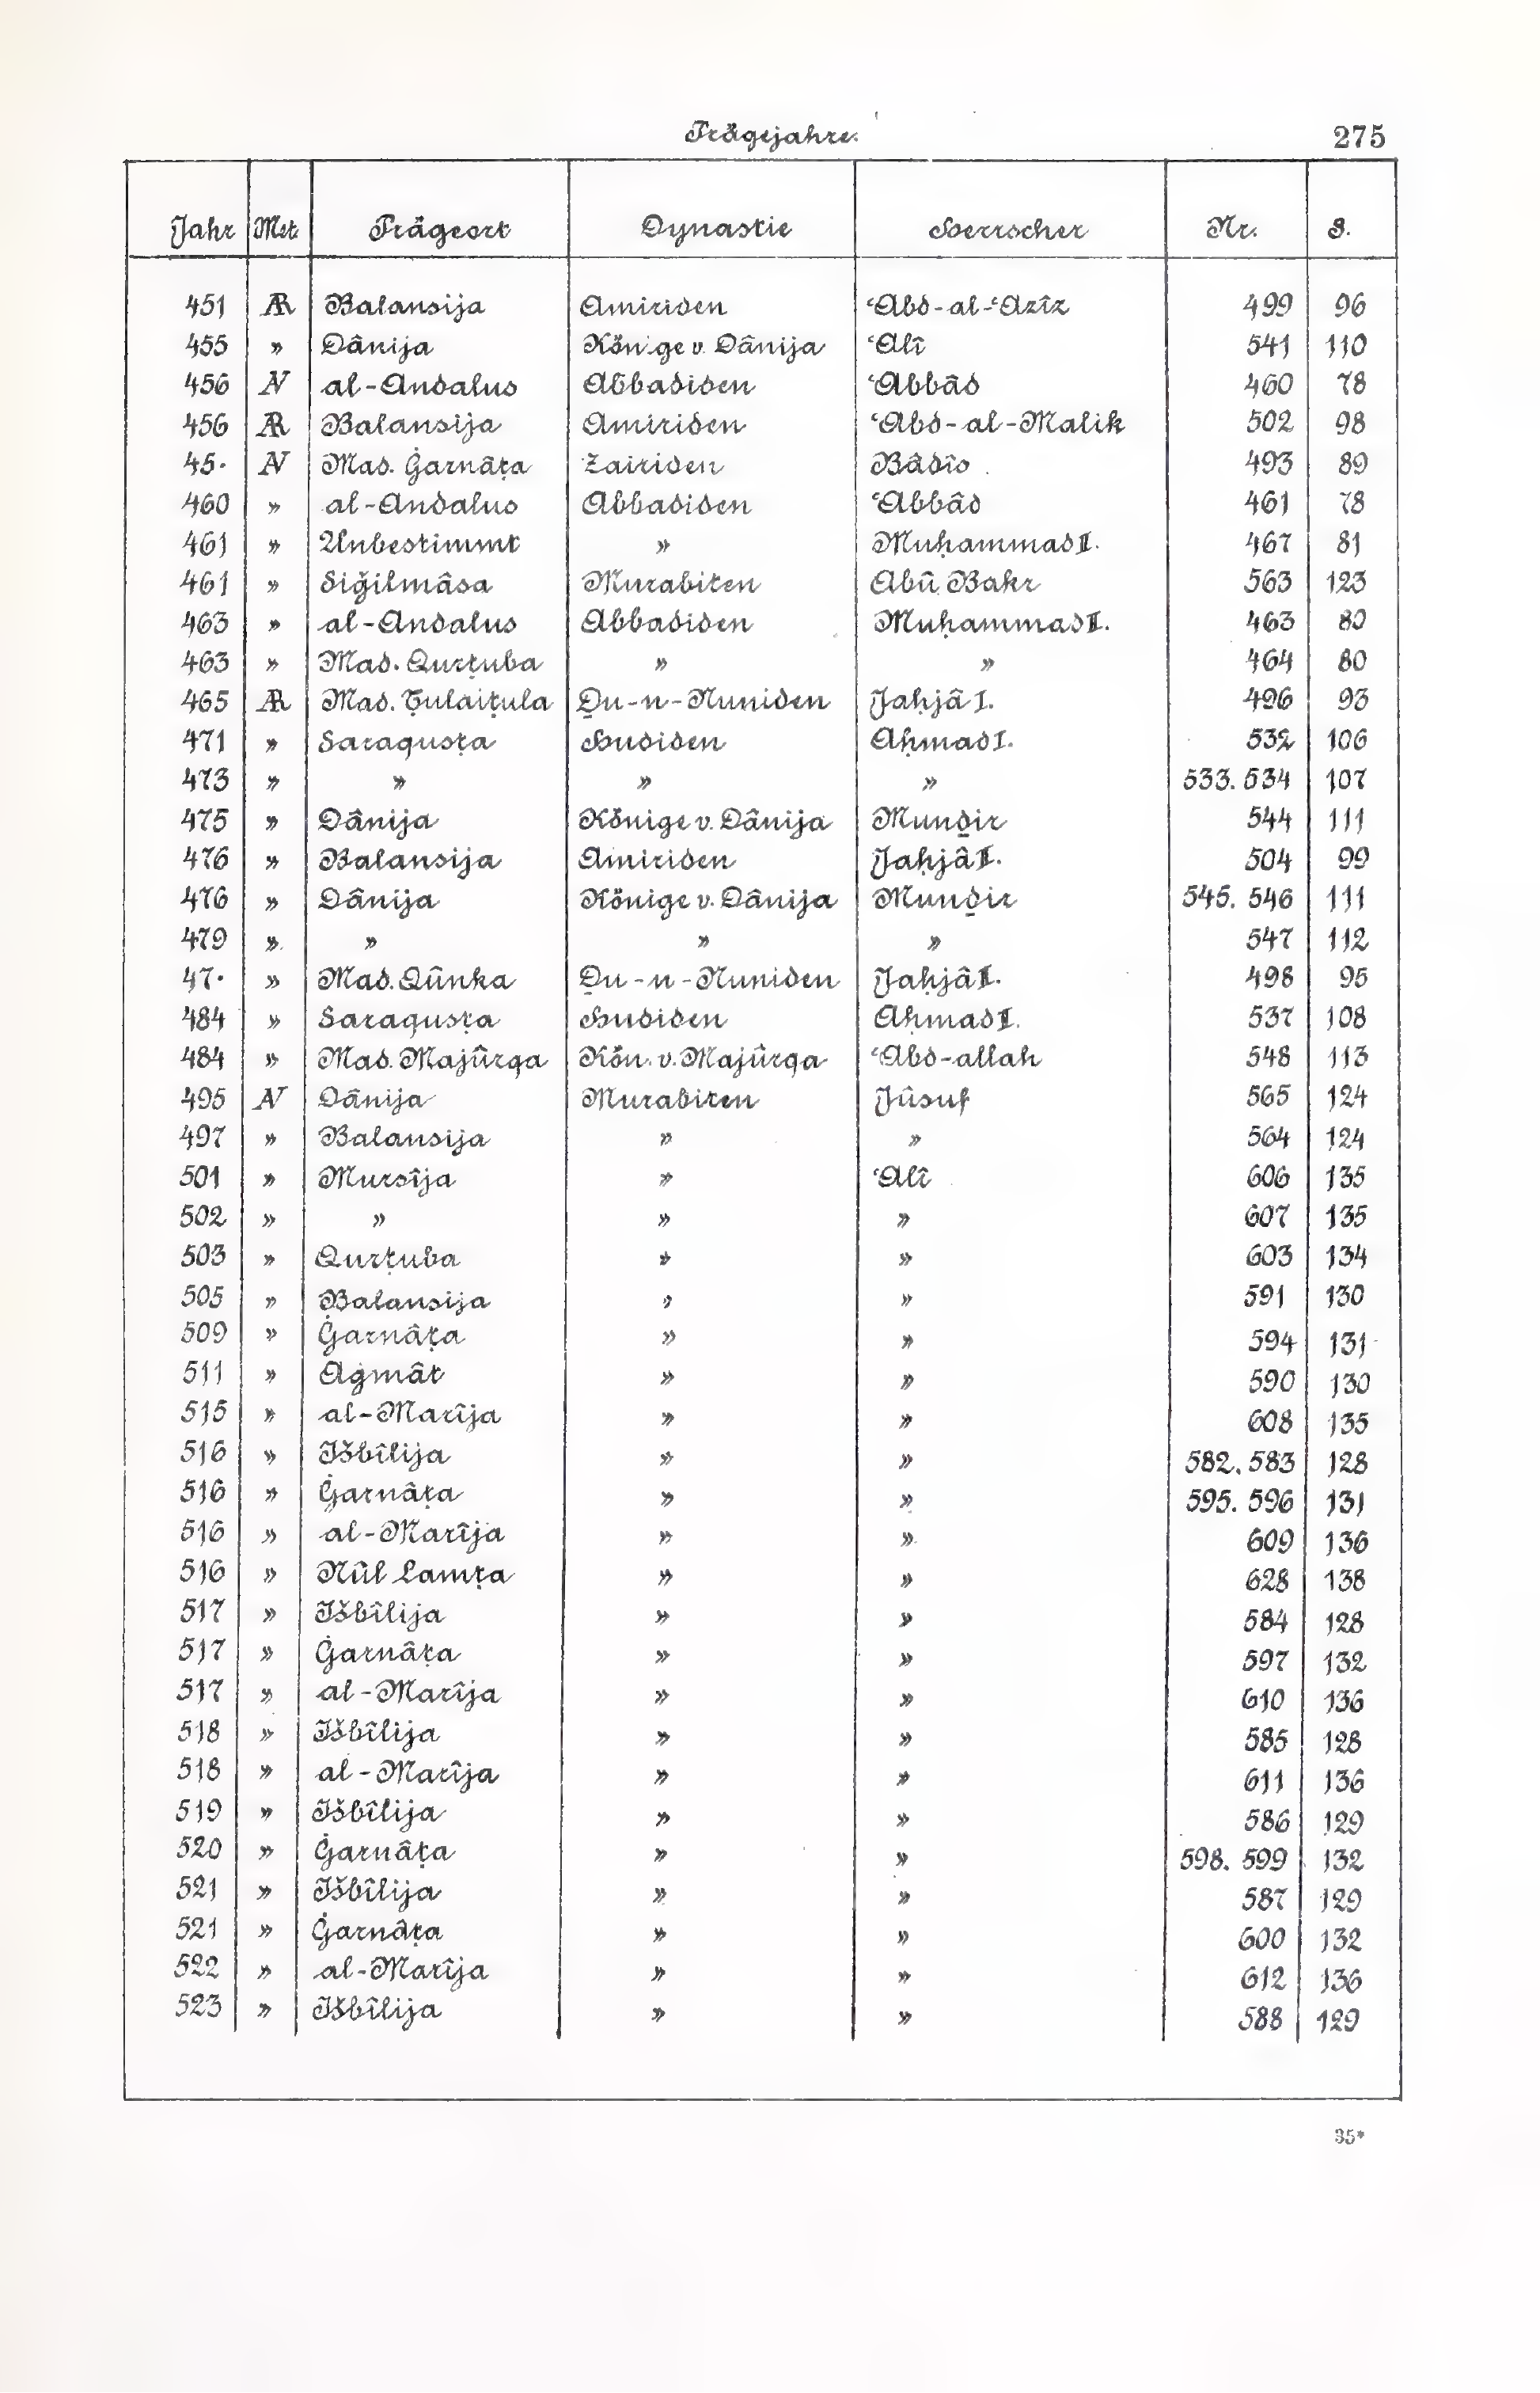 Prägejahre. 275
Jahr Met Prägeort Dynastie Herrscher Nr. S.
451 Æ Balansija Amiriden ʿAbd-al-ʿAzîz 499 96
455 » Dânija Könige v. Dânija ʿAlî 541 110
456 N al-Andalus Abbadiden ʿAbbâd 460 78
456 Æ Balansija Amiriden ʿAbd-al-Malik 502 98
45· N Mad. Ġarnâṭa Zairiden Bâdîs 493 89
460 » al-Andalus Abbadiden ʿAbbâd 461 78
461 » Unbestimmt » Muḥammad II. 467 81
461 » Siǧilmâsa Murabiten Abû Bakr 563 123
463 » al-Andalus Abbadiden Muḥammad II. 463 80
463 » Mad. Qurṭuba » » 464 80
465 Æ Mad. Ṭulaiṭula Ḏu-n-Nuniden Jaḥjâ I. 496 93
471 » Saraqusṭa Hudiden Aḥmad I. 532 106
473 » » » » 533. 534 107
475 » Dânija Könige v. Dânija Munḏir 544 111
476 » Balansija Amiriden Jaḥjâ II. 504 99
476 » Dânija Könige v. Dânija Munḏir 545. 546 111
479 » » » » 547 112
47· » Mad. Qûnka Ḏu-n-Nuniden Jaḥjâ II. 498 95
484 » Saraqusṭa Hudiden Aḥmad II. 537 108
484 » Mad. Majûrqa Kön. v. Majûrqa ʿAbd-allah 548 113
495 N Dânija Murabiten Jûsuf 565 124
497 » Balansija » » 564 124
501 » Mursîja » ʿAlî 606 135
502 » » » » 607 135
503 » Qurṭuba » » 603 134
505 » Balansija » » 591 130
509 » Ġarnâṭa » » 594 131
511 » Aġmât » » 590 130
515 » al-Marîja » » 608 135
516 » Išbîlija » » 582. 583 128
516 » Ġarnâṭa » » 595. 596 131
516 » al-Marîja » » 609 136
516 » Nûl Lamṭa » » 628 138
517 » Išbîlija » » 584 128
517 » Ġarnâṭa » » 597 132
517 » al-Marîja » » 610 136
518 » Išbîlija » » 585 128
518 » al-Marîja » » 611 136
519 » Išbîlija » » 586 129
520 » Ġarnâṭa » » 598. 599 132
521 » Išbîlija » » 587 129
521 » Ġarnâṭa » » 600 132
522 » al-Marîja » » 612 136
523 » Išbîlija » » 588 129
35*